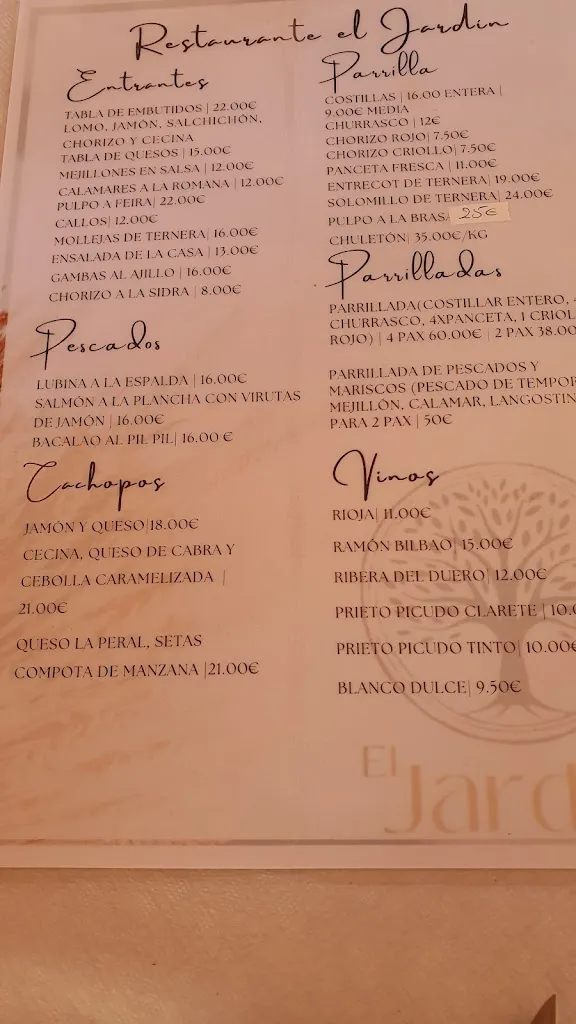 Restaurante el Jardín
Entrantes
TABLA DE EMBUTIDOS | 22.00€
LOMO, JAMÓN, SALCHICHÓN,
CHORIZO Y CECINA
TABLA DE QUESOS | 15.00€
MEJILLONES EN SALSA | 12.00€
CALAMARES A LA ROMANA | 12.00€
PULPO A FEIRA| 22.00€
CALLOS| 12.00€
MOLLEJAS DE TERNERA| 16.00€
ENSALADA DE LA CASA | 13.00€
GAMBAS AL AJILLO | 16.00€
CHORIZO A LA SIDRA | 8.00€
Pescados
LUBINA A LA ESPALDA | 16.00€
SALMÓN A LA PLANCHA CON VIRUTAS
DE JAMÓN | 16.00€
BACALAO AL PIL PIL| 16.00 €
Cachopos
JAMÓN Y QUESO|18.00€
CECINA, QUESO DE CABRA Y
CEBOLLA CARAMELIZADA |
21.00€
QUESO LA PERAL, SETAS
COMPOTA DE MANZANA |21.00€
Parrilla
COSTILLAS | 16.00 ENTERA |
9.00€ MEDIA
CHURRASCO | 12€
CHORIZO ROJO| 7.50€
CHORIZO CRIOLLO| 7.50€
PANCETA FRESCA | 11.00€
ENTRECOT DE TERNERA| 19.00€
SOLOMILLO DE TERNERA| 24.00€
PULPO A LA BRASA 25€
CHULETÓN| 35.00€/KG
Parrilladas
PARRILLADA(COSTILLAR ENTERO,
CHURRASCO, 4XPANCETA, 1 CRIOL
ROJO) | 4 PAX 60.00€ | 2 PAX 38.00
PARRILLADA DE PESCADOS Y
MARISCOS (PESCADO DE TEMPOR
MEJILLÓN, CALAMAR, LANGOSTIN
PARA 2 PAX | 50€
Vinos
RIOJA| 11.00€
RAMÓN BILBAO| 15.00€
RIBERA DEL DUERO| 12.00€
PRIETO PICUDO CLARETE | 10.0
PRIETO PICUDO TINTO| 10.00€
BLANCO DULCE| 9.50€
El
Jard